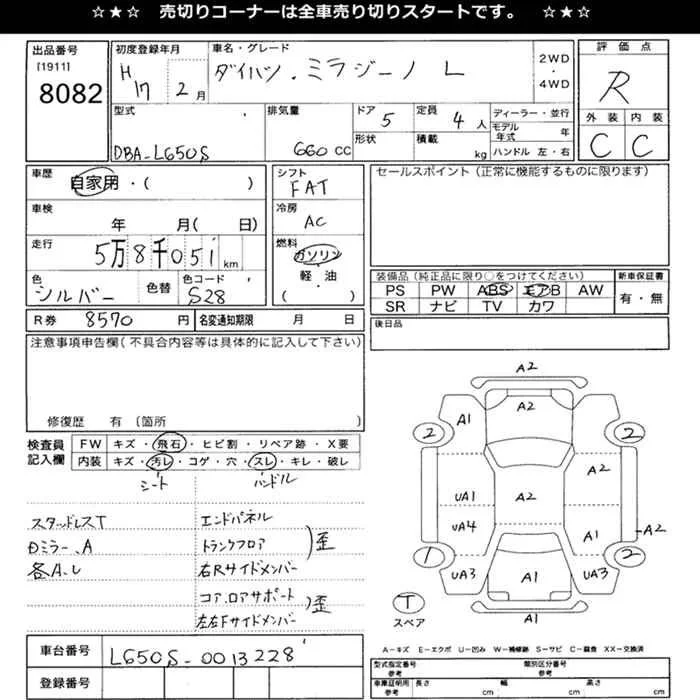 ☆★☆ 売切りコーナーは全車売り切りスタートです。 ☆★☆
出品番号 [1911] 8082
初度登録年月 H17 2月
車名・グレード ダイハツ・ミラジーノ L
2WD・4WD
評価点 R
型式 DBA-L650S
排気量 660 CC
ドア 5
形状
定員 4 人
積載 kg
ディーラー・並行
モデル年式 年
ハンドル 左・右
外装 内装
C C
車歴 自家用・( )
シフト FAT
セールスポイント(正常に機能するものに限ります)
車検 年 月( 日)
冷房 AC
走行 5万8千051km
燃料 ガソリン・軽・油 ( )
色 シルバー 色替
色コード S28
装備品(純正品に限り○をつけてください)
新車保証書
PS PW ABS エアB AW
有・無
SR ナビ TV カワ
R券 8570 円
名変通知期限 月 日
後日品
注意事項申告欄(不具合内容等は具体的に記入して下さい)
修復歴 有(箇所
検査員記入欄
FW キズ・飛石・ヒビ割・リペア跡・X要
内装 キズ・汚レ・コゲ・穴・スレ・キレ・破レ
シート ハンドル
スタッドレスT
Dミラー.A
各A.U
エンドパネル
トランクフロア
歪
右Rサイドメンバー
コア.ロアサポート
歪
左右Fサイドメンバー
A2
A2
A1
2
2
A2
UA1
A2
UA4
A1
A2
1
2
UA3
A1
UA3
T
スペア
A1
A-キズ E-エクボ U-凹み W-補修跡 S-サビ C-腐食 XX-交換済
車台番号 L650S-0013228
登録番号
型式指定番号 参考
類別区分番号 参考
車庫証明用 参考
長さ cm
幅 cm
高さ cm